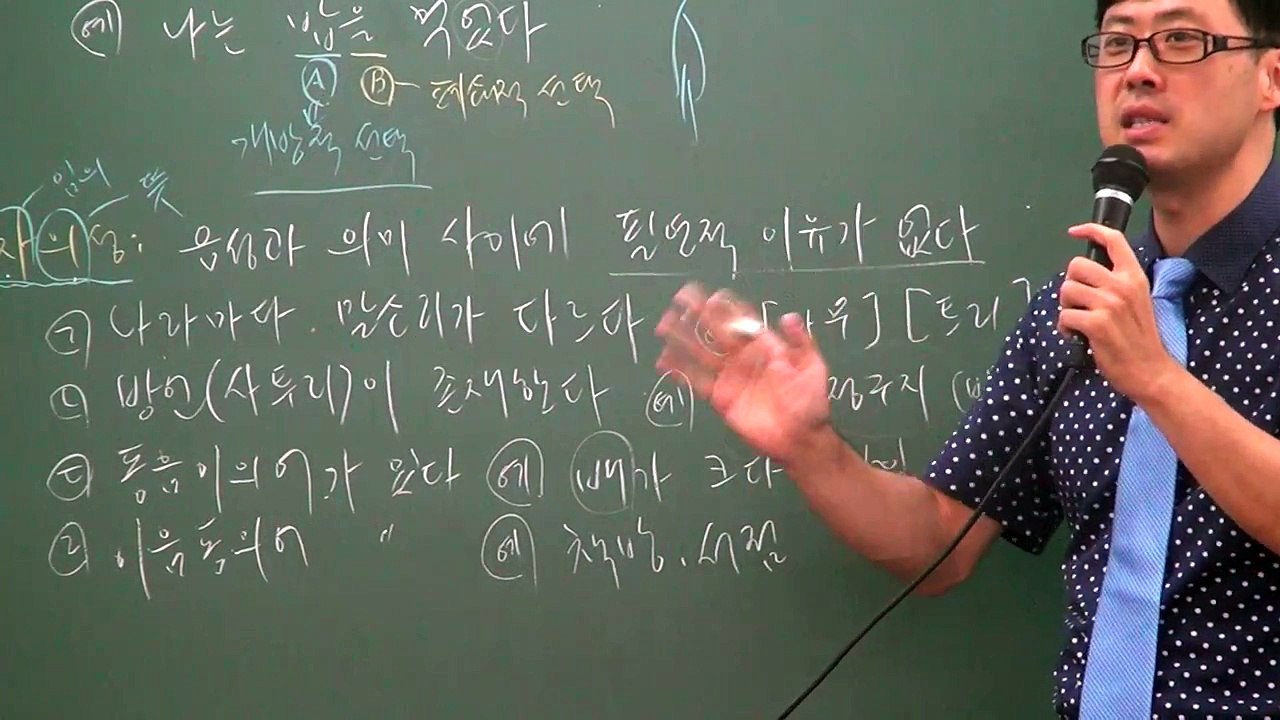 예 나는 밥을 먹었다
A B 형태적 선택
계양적 선택
임의 뜻
자의성: 음성과 의미 사이에 필연적 이유가 없다
㉠ 나라마다 말소리가 다르다 [나무] [트리]
㉡ 방언(사투리)이 존재한다 예 정구지
㉢ 동음이의어가 있다 예 배가 크다
㉣ 이음동의어 〃 예 책방, 서점